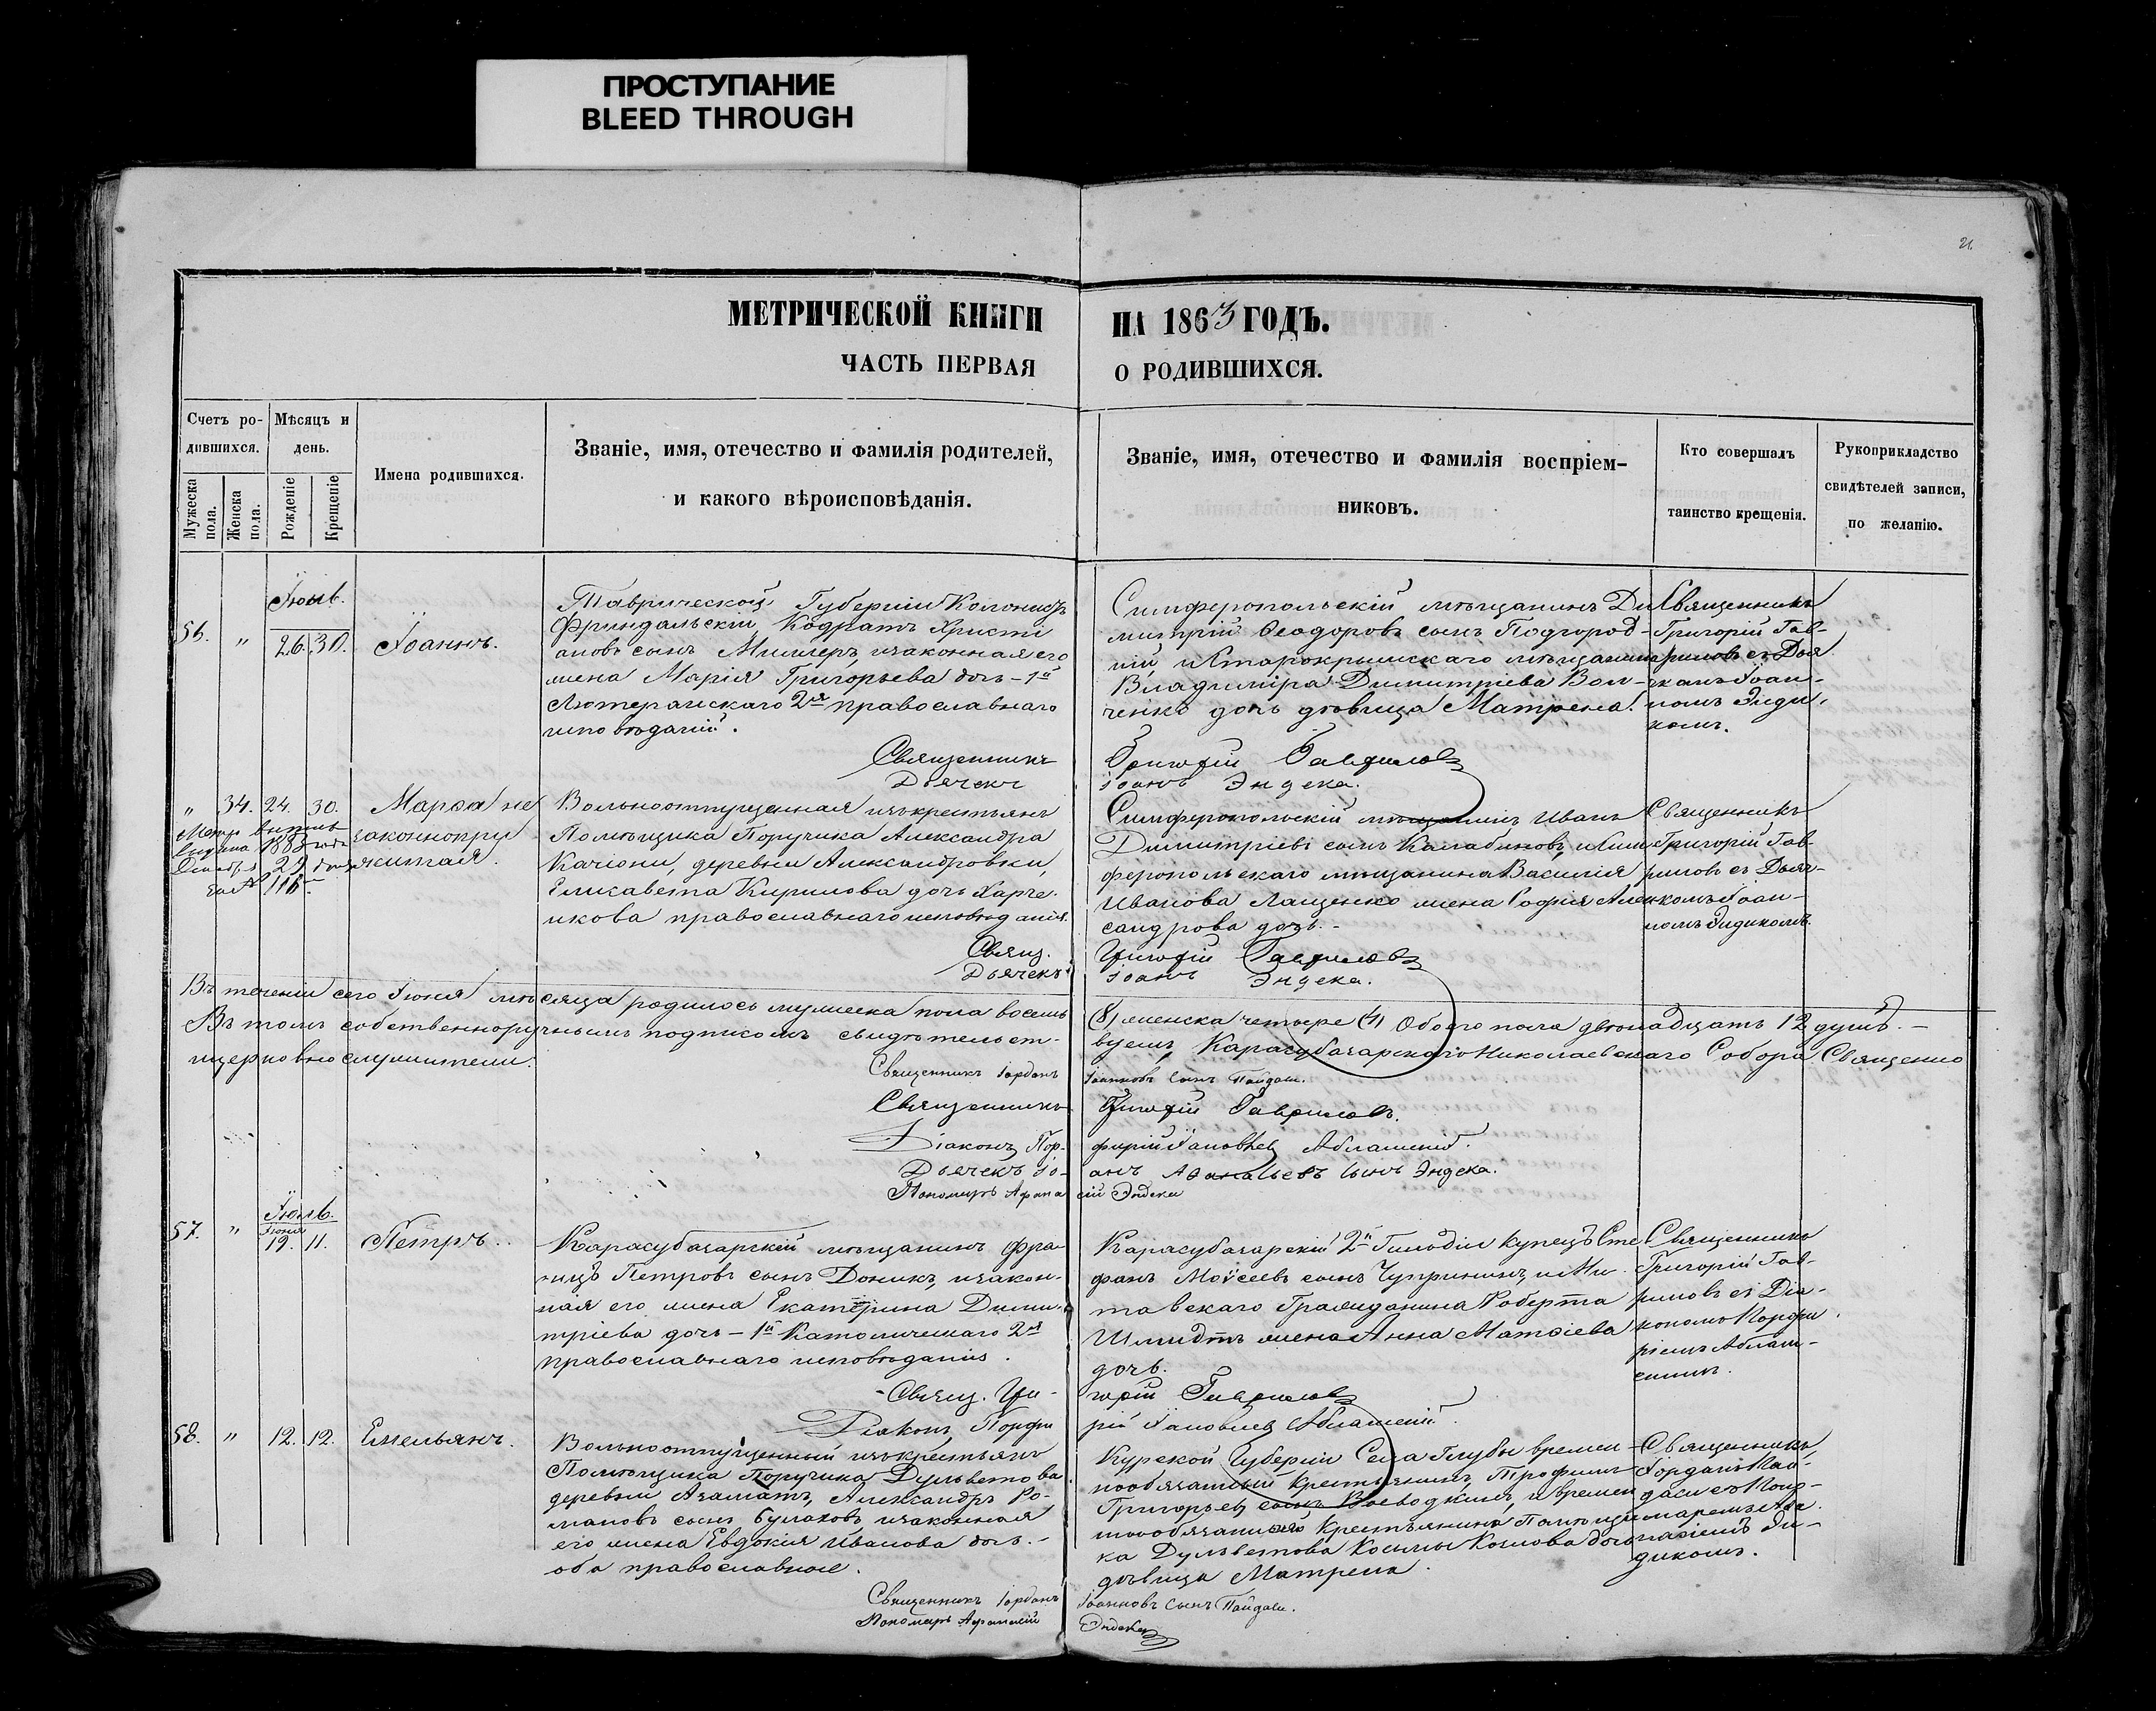 ПРОСТУПАНИЕ
BLEED THROUGH
21.
МЕТРИЧЕСКОЙ КНИГИ НА 1863 ГОДЪ.
ЧАСТЬ ПЕРВАЯ О РОДИВШИХСЯ.
Счетъ ро-
дившихся.
Мужеска пола.
Женска пола.
Мѣсяцъ и
день.
Рожденіе
Крещеніе
Имена родившихся.
Званіе, имя, отечество и фамилія родителей,
и какого вѣроисповѣданія.
Званіе, имя, отечество и фамилія воспріем-
никовъ.
Кто совершалъ
таинство крещенія.
Рукоприкладство
свидѣтелей записи,
по желанію.
56. " 26. 30. Іоаннъ.
Таврической Губерніи Колонистъ
Фриндальскій Кодратъ Христі
ановъ сынъ Миллеръ, изаконная его
жена Марія Григорьева дочь - 1й
Лютеранскаго 2я православнаго
исповѣданій.
Симферопольскій мѣщанинъ Ди
митрій Ѳеодоровъ сынъ Подгород-
ній, иСтарокрымскаго мѣщанина
Владиміра Димитріева Вол-
ченко дочь дѣвица Матрена.
Священникъ
Григорій Гав-
риловъ съ Дья
комъ Іоан-
номъ Энди,
комъ.
Священникъ Григорій Гавриловъ
Дьячекъ Іоаннъ Эндека.
" 34. 24. 30. Марѳа не
законнопри
житая.
Метр выпись
выдана 1888 года
Декабря 29 дня
за № 116
Вольноотпущенная изъкрестьянъ
Помѣщика Поручика Александра
Качіони, деревни Александровки,
Елисавета Кирилова дочь Харче.
икова православнаго исповѣданія.
Симферопольскій мѣщанинъ Иванъ
Димитріевъ сынъ Калабиновъ, иСим
феропольскаго мѣщанина Василія
Иванова Лащенко жена Софія Алек
сандрова дочь. -
Священникъ
Григорій Гав-
риловъ съ Дьяч-
комъ Іоан-
номъ Эндикомъ.
Свящ. Григорій Гавриловъ
Дьячекъ Іоаннъ Эндека.
Въ теченіи сего Іюня мѣсяца родилось мужеска пола восемь (8) женска четыре (4) Обоего пола двѣнадцать 12 душъ. -
Въ томъ собственноручнымъ подписомъ свидѣтельст- вуемъ Карасубазарскаго Николаевскаго Собора Священно
ицерковнослужители.
Священникъ Іорданъ Іоанновъ сынъ Пайдаси.
Священникъ Григорій Гавриловъ.
Діаконъ Пор- фирій Іаковлевъ Аблашскій.
Дьячекъ Іо- анъ Аѳанасьевъ сынъ Эндека.
Пономарь Аѳана сій Эндека
Іюль.
Іюня
57. " 19. 11. Петръ.
Карасубазарскій мѣщанинъ Фра-
нцъ Петровъ сынъ Доникъ, изакон-
ная его жена Екатерина Дими-
тріева дочь - 1й Католическаго 2я
православнаго исповѣданія.
Карасубазарскій 2й Гильдіи купецъ Сте
фанъ Моѵсеевъ сынъ Чупринин, иМи
тавскаго Гражданина Роберта
Шмидтъ жена Анна Матѳіева
дочь.
Священникъ
Григорій Гав-
риловъ съ Діа-
кономъ Порфи
ріемъ Аблаш-
скимъ.
Свящ. Гри- горій Гавриловъ
Діаконъ Порфи рій Іаковлевъ Аблашскій.
58. " 12. 12. Емельянъ.
Вольноотпущенный изъкрестьянъ
Помѣщика Поручика Дульветова
деревни Азаматъ, Александръ Ро-
мановъ сынъ Булаховъ изаконная
его жена Евдокія Иванова дочь. -
оба православные.
Курской Губерніи Села Глубы времен-
нообязанный крестьянинъ Трофимъ
Григорьевъ сынъ Воеводкинъ, и времен
нообязаннаго крестьянина Помѣщи
ка Дульветова Косьмы Козлова дочь
дѣвица Матрена.
Священникъ
Іорданъ Пай-
даси съ Поно-
маремъ Аѳа
насіемъ Эн-
дикомъ.
Священникъ Іорданъ Іоанновъ сынъ Пайдаси.
Пономарь Аѳанасій Эндека